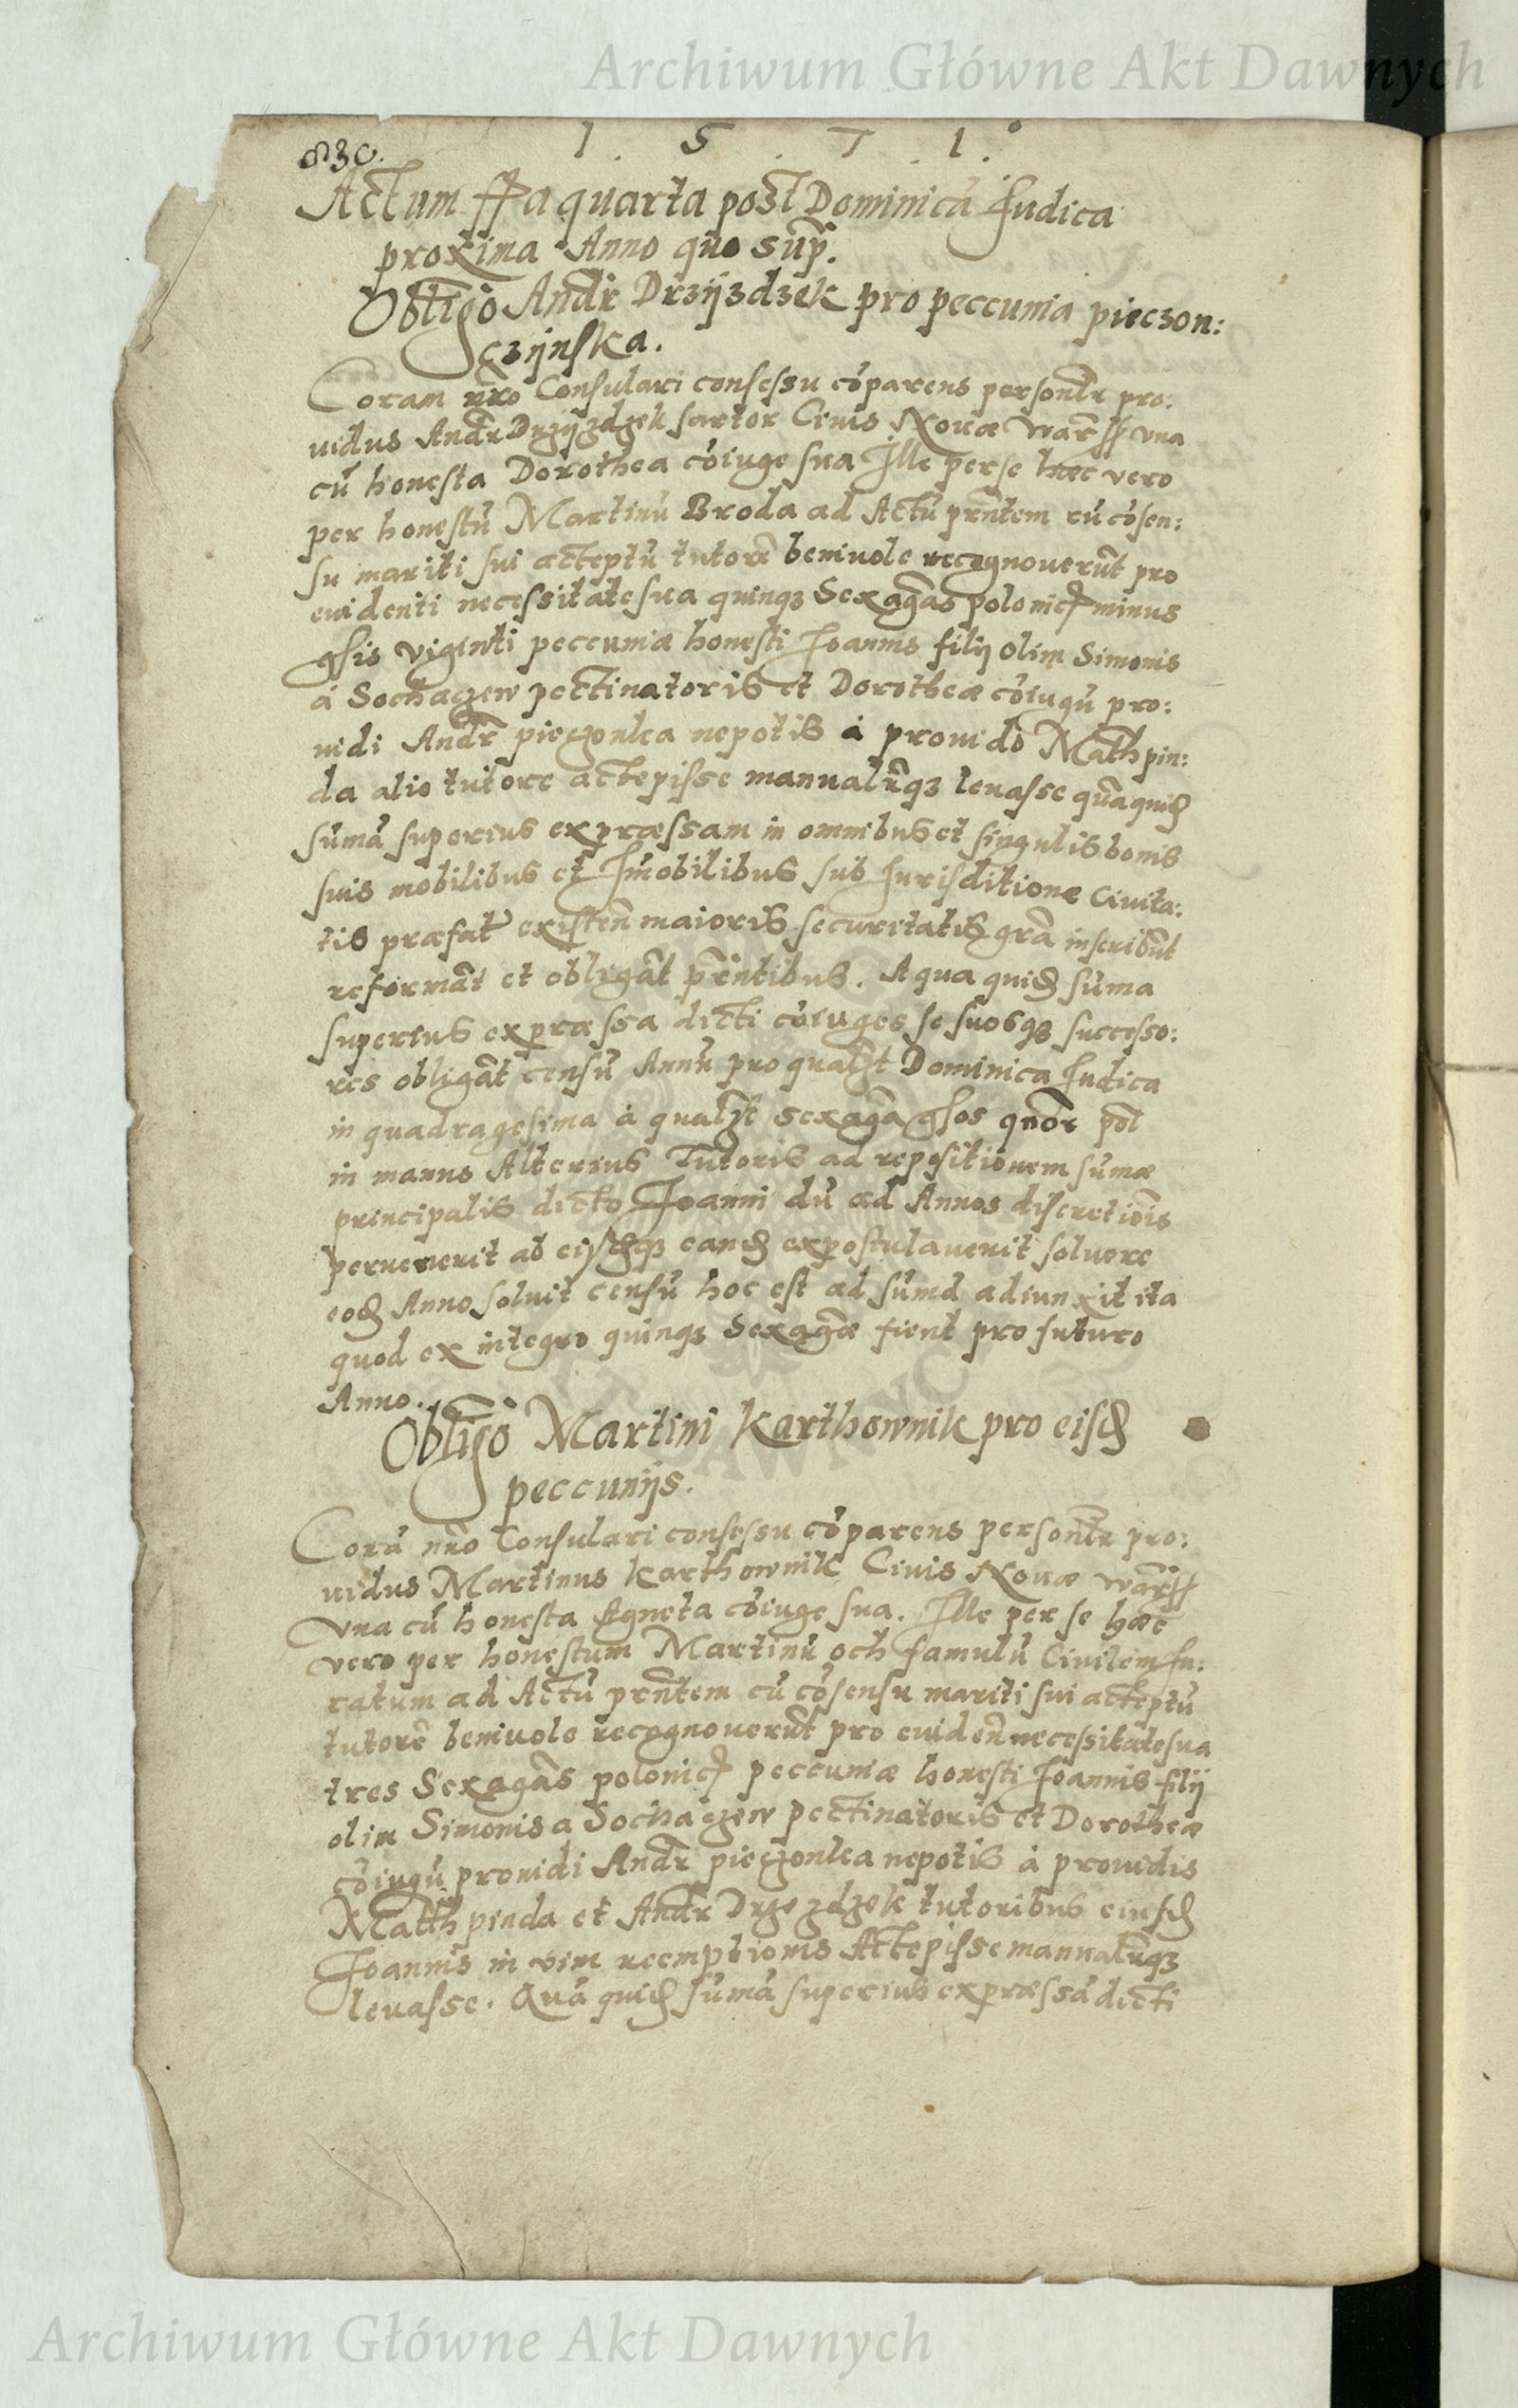 Archiwum Główne Akt Dawnych
1. 5. 7. 1.
830.
Actum ffa quarta post Dominicā Judica
proxima Anno quo sup.
Obligō Andr Drzÿzdzek pro peccunia pieczon:
czÿnska.
Coram nr̄o Consulari consessu cōparens personlr pro:
uidus Andr Drzÿzdzek sartor Ciuis Nouæ Warss vna
cū honesta Dorothea cōiuge sua Ille per se hæc vero
per honestū Martinū Broda ad Actū prn̄tem cū cōsen:
su mariti sui acceptū tutorē beniuole recognouerūt pro
euidenti necessitate sua quinqз Sexagās polonic minus
gſis viginti peccuniæ honesti Joannis filij olim Simonis
à Sochaczew pectinatoris et Dorotheæ cōiugū pro:
uidi Andr pieczonka nepotis à prouido Math pin:
da alio tutore accepisse manualrqз leuasse quā quid
sūmā superius expræssam in omnibus et singulis bonis
suis mobilibus et Imobilibus sub Jurisditione Ciuita:
tis præfat existen maioris securitatis grā inscribūt
reformāt et obligāt prn̄tibus. A qua quid sūma
superius expræssa dicti cōiuges se suosqз successo:
res obligāt censū Annū pro qualt Dominica Judica
in quadragesima à qualt sexagā gſos quor pol
in manus Alterius Tutoris ad repositionem sūmæ
principalis dicto Joanni dū ad Annos discretiōis
peruenerit ab eisdqз eand expostulauerit soluere
eod Anno soluit censū hoc est ad sūmā adiunxit ita
quod ex integro quinqз Sexagæ fient pro futuro
Anno.
Obligō Martini Karthownik pro eisd
peccunijs.
Corā nr̄o Consulari consessu cōparens personlr pro:
uidus Martinus Karthownik Ciuis Nouæ warss
vna cū honesta Agneta cōiuge sua. Ille per se hæc
vero per honestum Martinū och famulū Ciuilem Ju:
ratum ad Actū prn̄tem cū cōsensu mariti sui acceptū
tutorē beniuole recognouerūt pro euiden necessitate sua
tres Sexagās polonic peccuniæ honesti Joannis filij
olim Simonis a Sochaczew pectinatoris et Dorotheæ
cōiugū prouidi Andr pieczonka nepotis à prouidis
Matth pinda et Andr Drzezdzek tutoribus eiusd
Joannis in vim reemptionis Accepisse manualrqз
leuasse. Quā quid sūmā superius expræssā dicti
Archiwum Główne Akt Dawnych